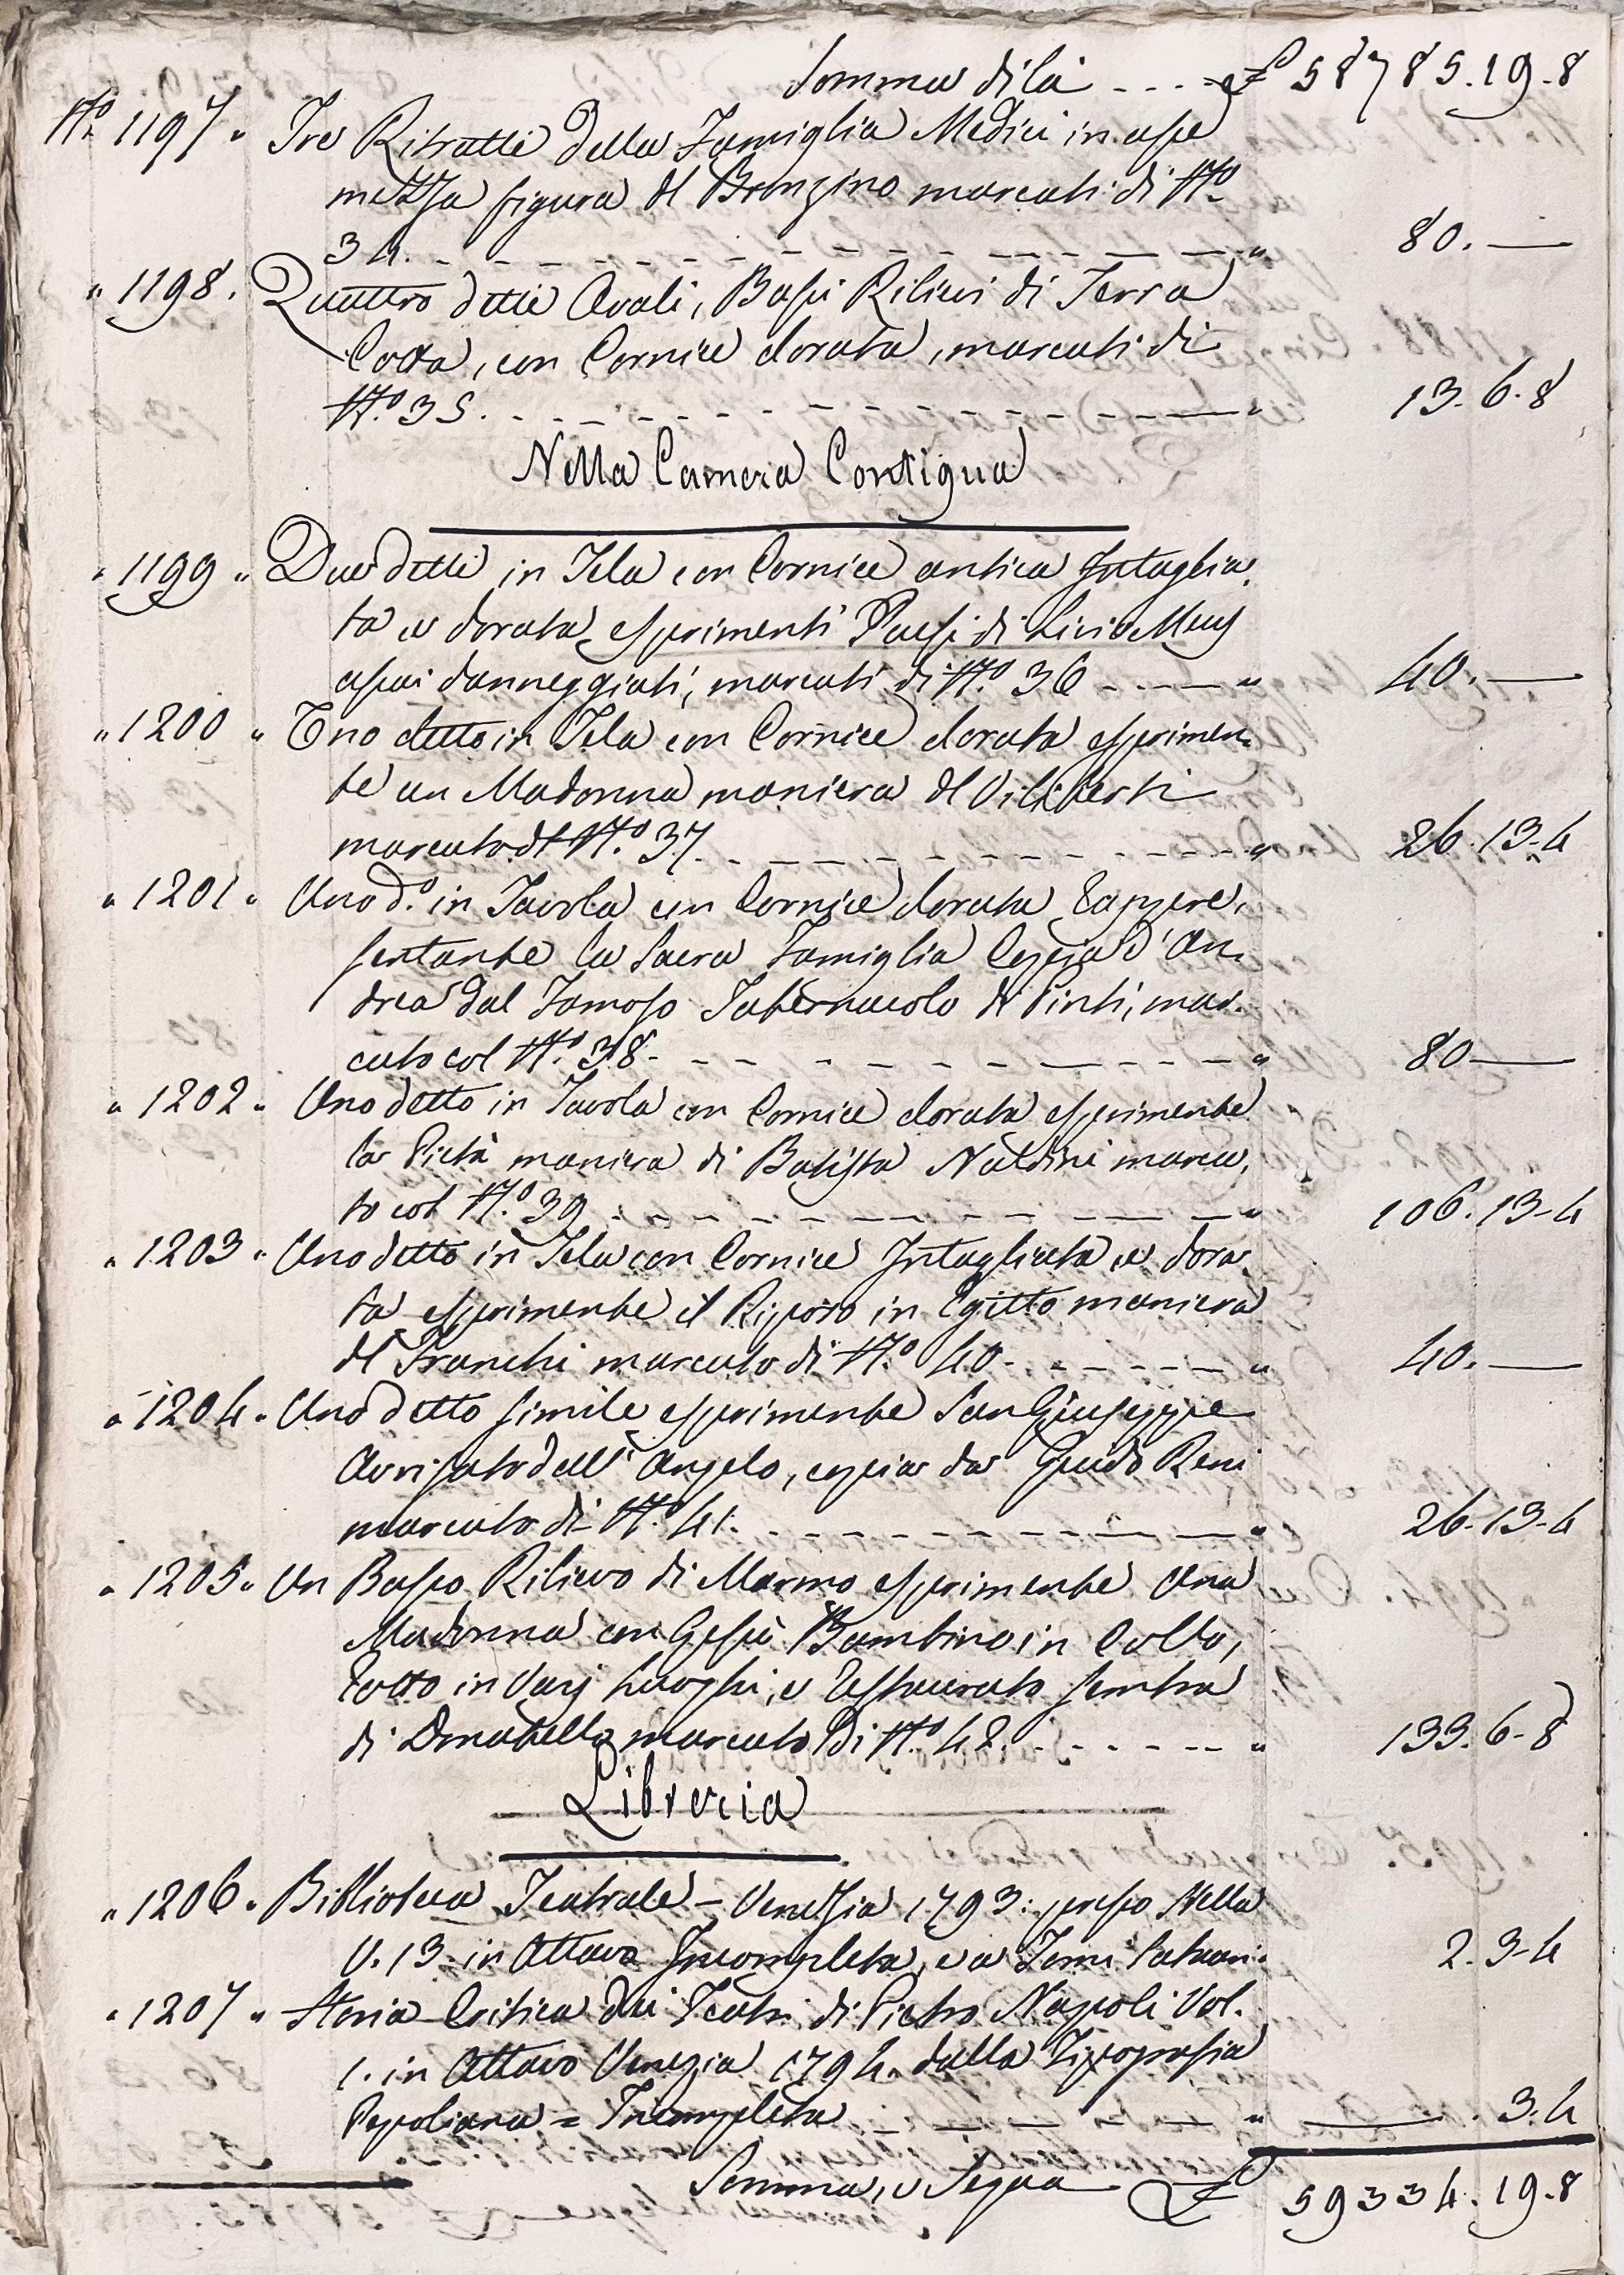 Somma di là - - - £ 58785.19.8
No. 1197. Tre Ritratti della Famiglia Medici in asse
mezza figura del Bronzino marcati di No.
34. - - - - - - - - - - " 80. —
" 1198. Quattro detti Ovali, Bassi Rilievi di Terra
Cotta, con Cornice dorata, marcati di
No. 35. - - - - - - - - - - " 13.6.8
Nella Camera Contigua
" 1199 " Due detti in Tela con Cornice antica Intaglia
ta e dorata esprimenti Paesi di Livio Meus
assai danneggiati, marcati di No. 36 - - - " 40. —
" 1200 " Uno detto in Tela con Cornice dorata esprimen
te un Madonna maniera del Biliberti
marcato di No. 37. - - - - - - - - " 26.13.4
" 1201 " Uno do. in Tavola con Cornice dorata rappre
sentante la Sacra Famiglia Copia d'An
drea dal Famoso Tabernacolo di Pinti, mar
cato col No. 38 - - - - - - - - - " 80 —
" 1202 " Uno detto in Tavola con Cornice dorata esprimente
la Pietà maniera di Batista Naldini marca
to col No. 39. - - - - - - - - - " 106.13.4
" 1203 " Uno detto in Tela con Cornice Intagliata e dora
ta esprimente il Riposo in Egitto maniera
del Franchi marcato di No. 40 - - - - - " 40. —
" 1204 " Uno detto simile esprimente San Giuseppe
Avvisato dall'Angelo, copia da Guido Reni
marcato di No. 41. - - - - - - - - " 26.13.4
" 1205 " Un Basso Rilievo di Marmo esprimente Una
Madonna con Gesù Bambino in Collo,
rotto in Varj Luoghi, e restaurato sembra
di Donatello marcato di No. 42. - - - - - " 133.6.8
Libreria
" 1206 " Biblioteca Teatrale - Venezia 1793: presso Stella
V. 13 in Ottavo Incompleta, e a Tomi Saltuari. 2.3.4
" 1207 " Storia Critica dei Teatri di Pietro Napoli Vol.
1. in Ottavo Venezia 1794. dalla Tipografia
Pepoliana = Incompleta - - - - " — . 3.4
Somma, e Segue £ 59334.19.8